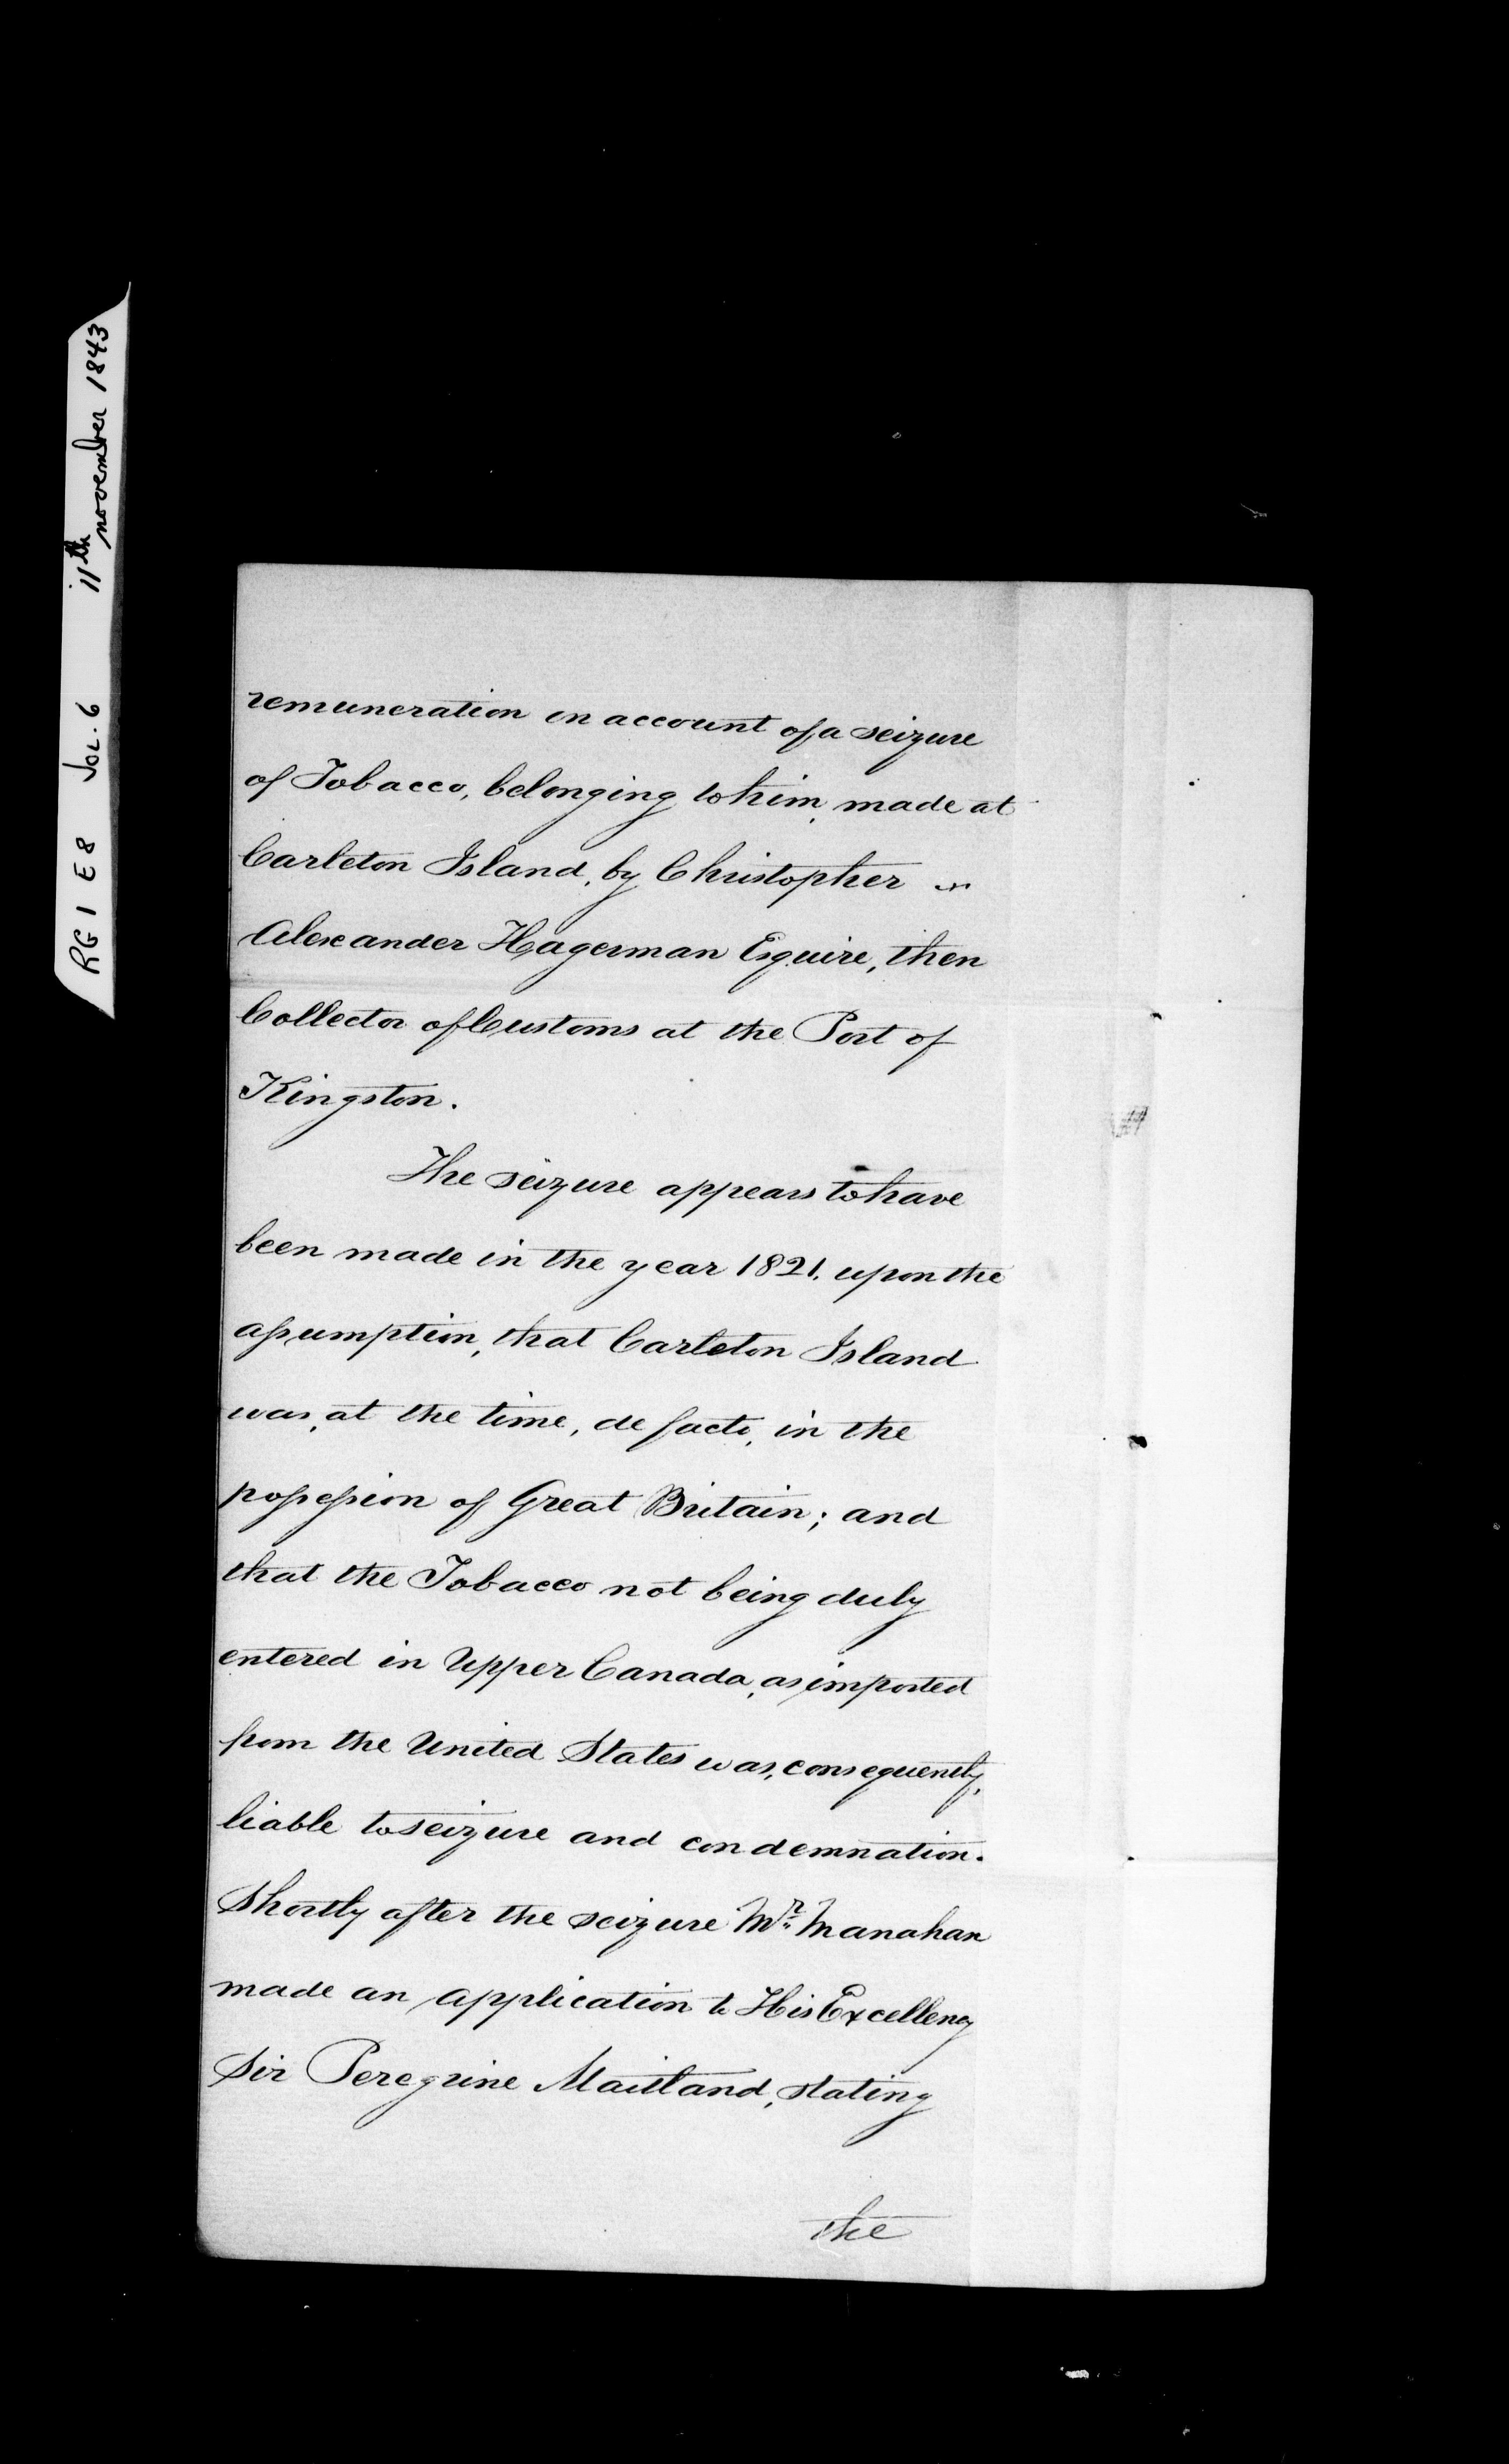 RG 1 E 8 Vol. 6 11th november 1843
remuneration on account of a seizure
of Tobacco, belonging to him, made at
Carleton Island, by Christopher
Alexander Hagerman Esquire, then
Collector of Customs at the Port of
Kingston.
The seizure appears to have
been made in the year 1821, upon the
assumption, that Carleton Island
was, at the time, de facto, in the
possession of Great Britain; and
that the Tobacco not being duly
entered in Upper Canada, as imported
from the United States was, consequently,
liable to seizure and condemnation.
Shortly after the seizure Mr. Manahan
made an application to His Excellency
Sir Peregrine Maitland, stating
the